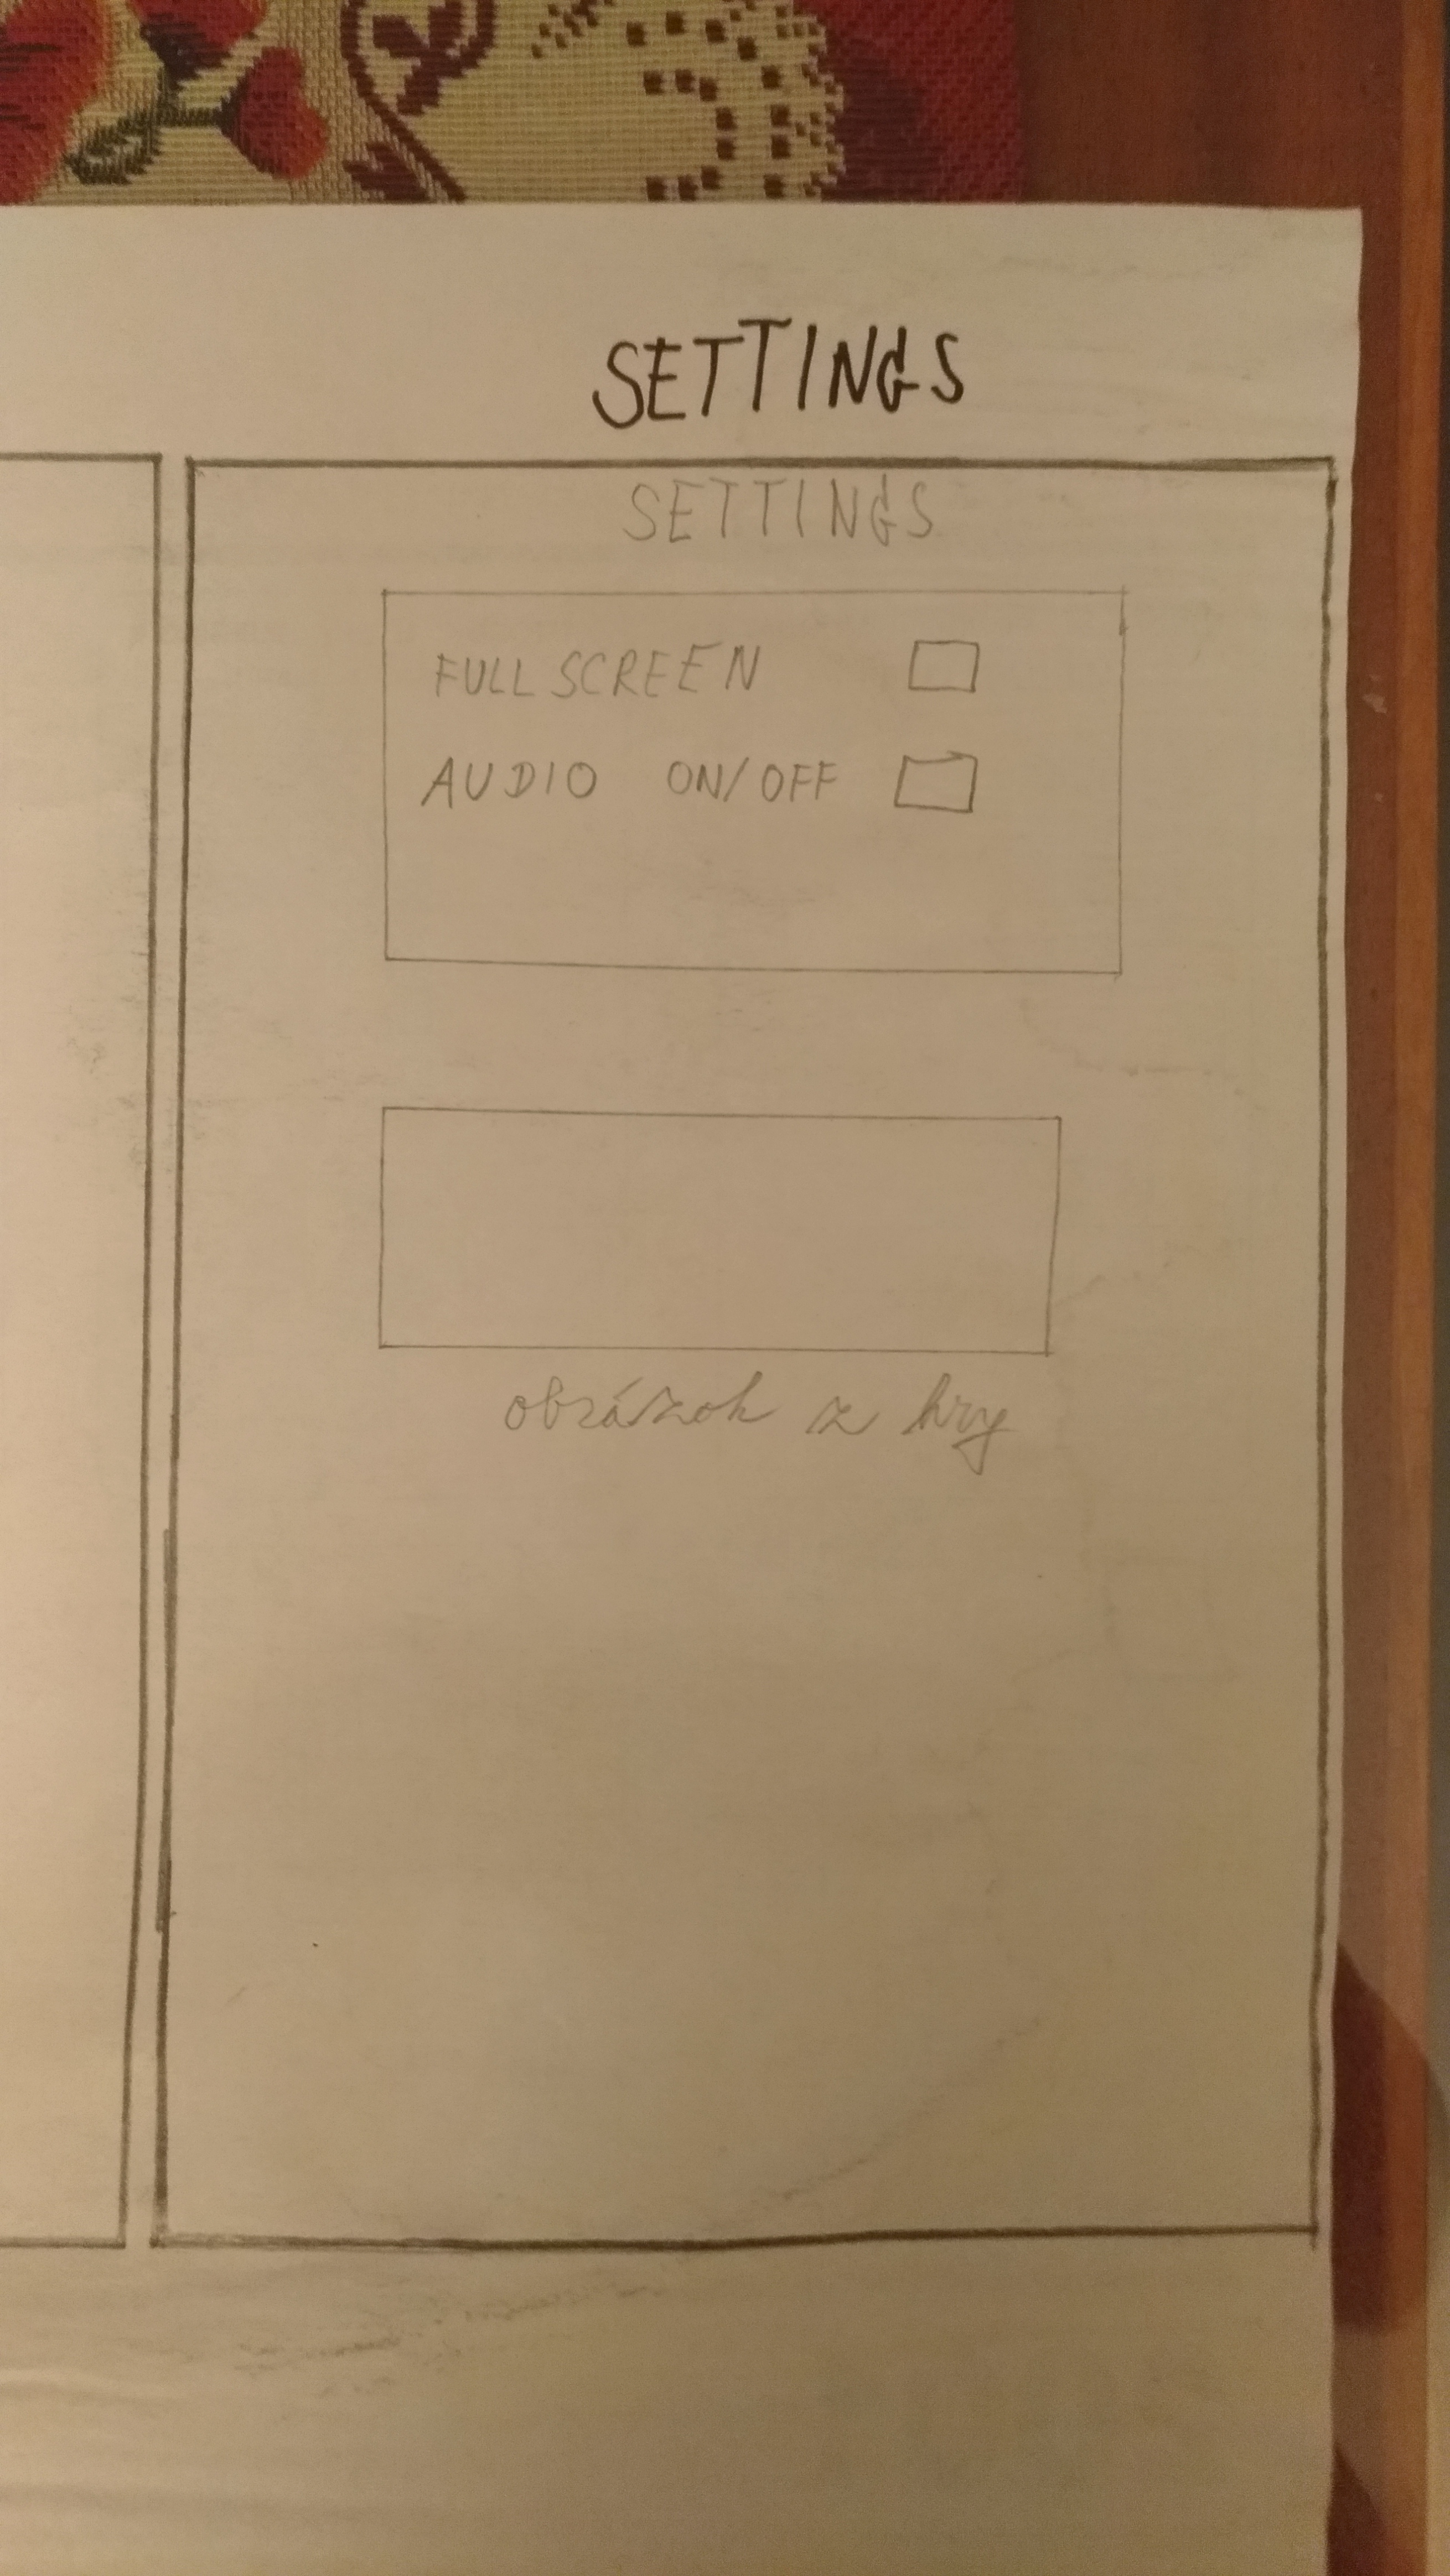 SETTINGS
SETTINGS
FULLSCREEN
AUDIO ON/OFF
obrázok z hry